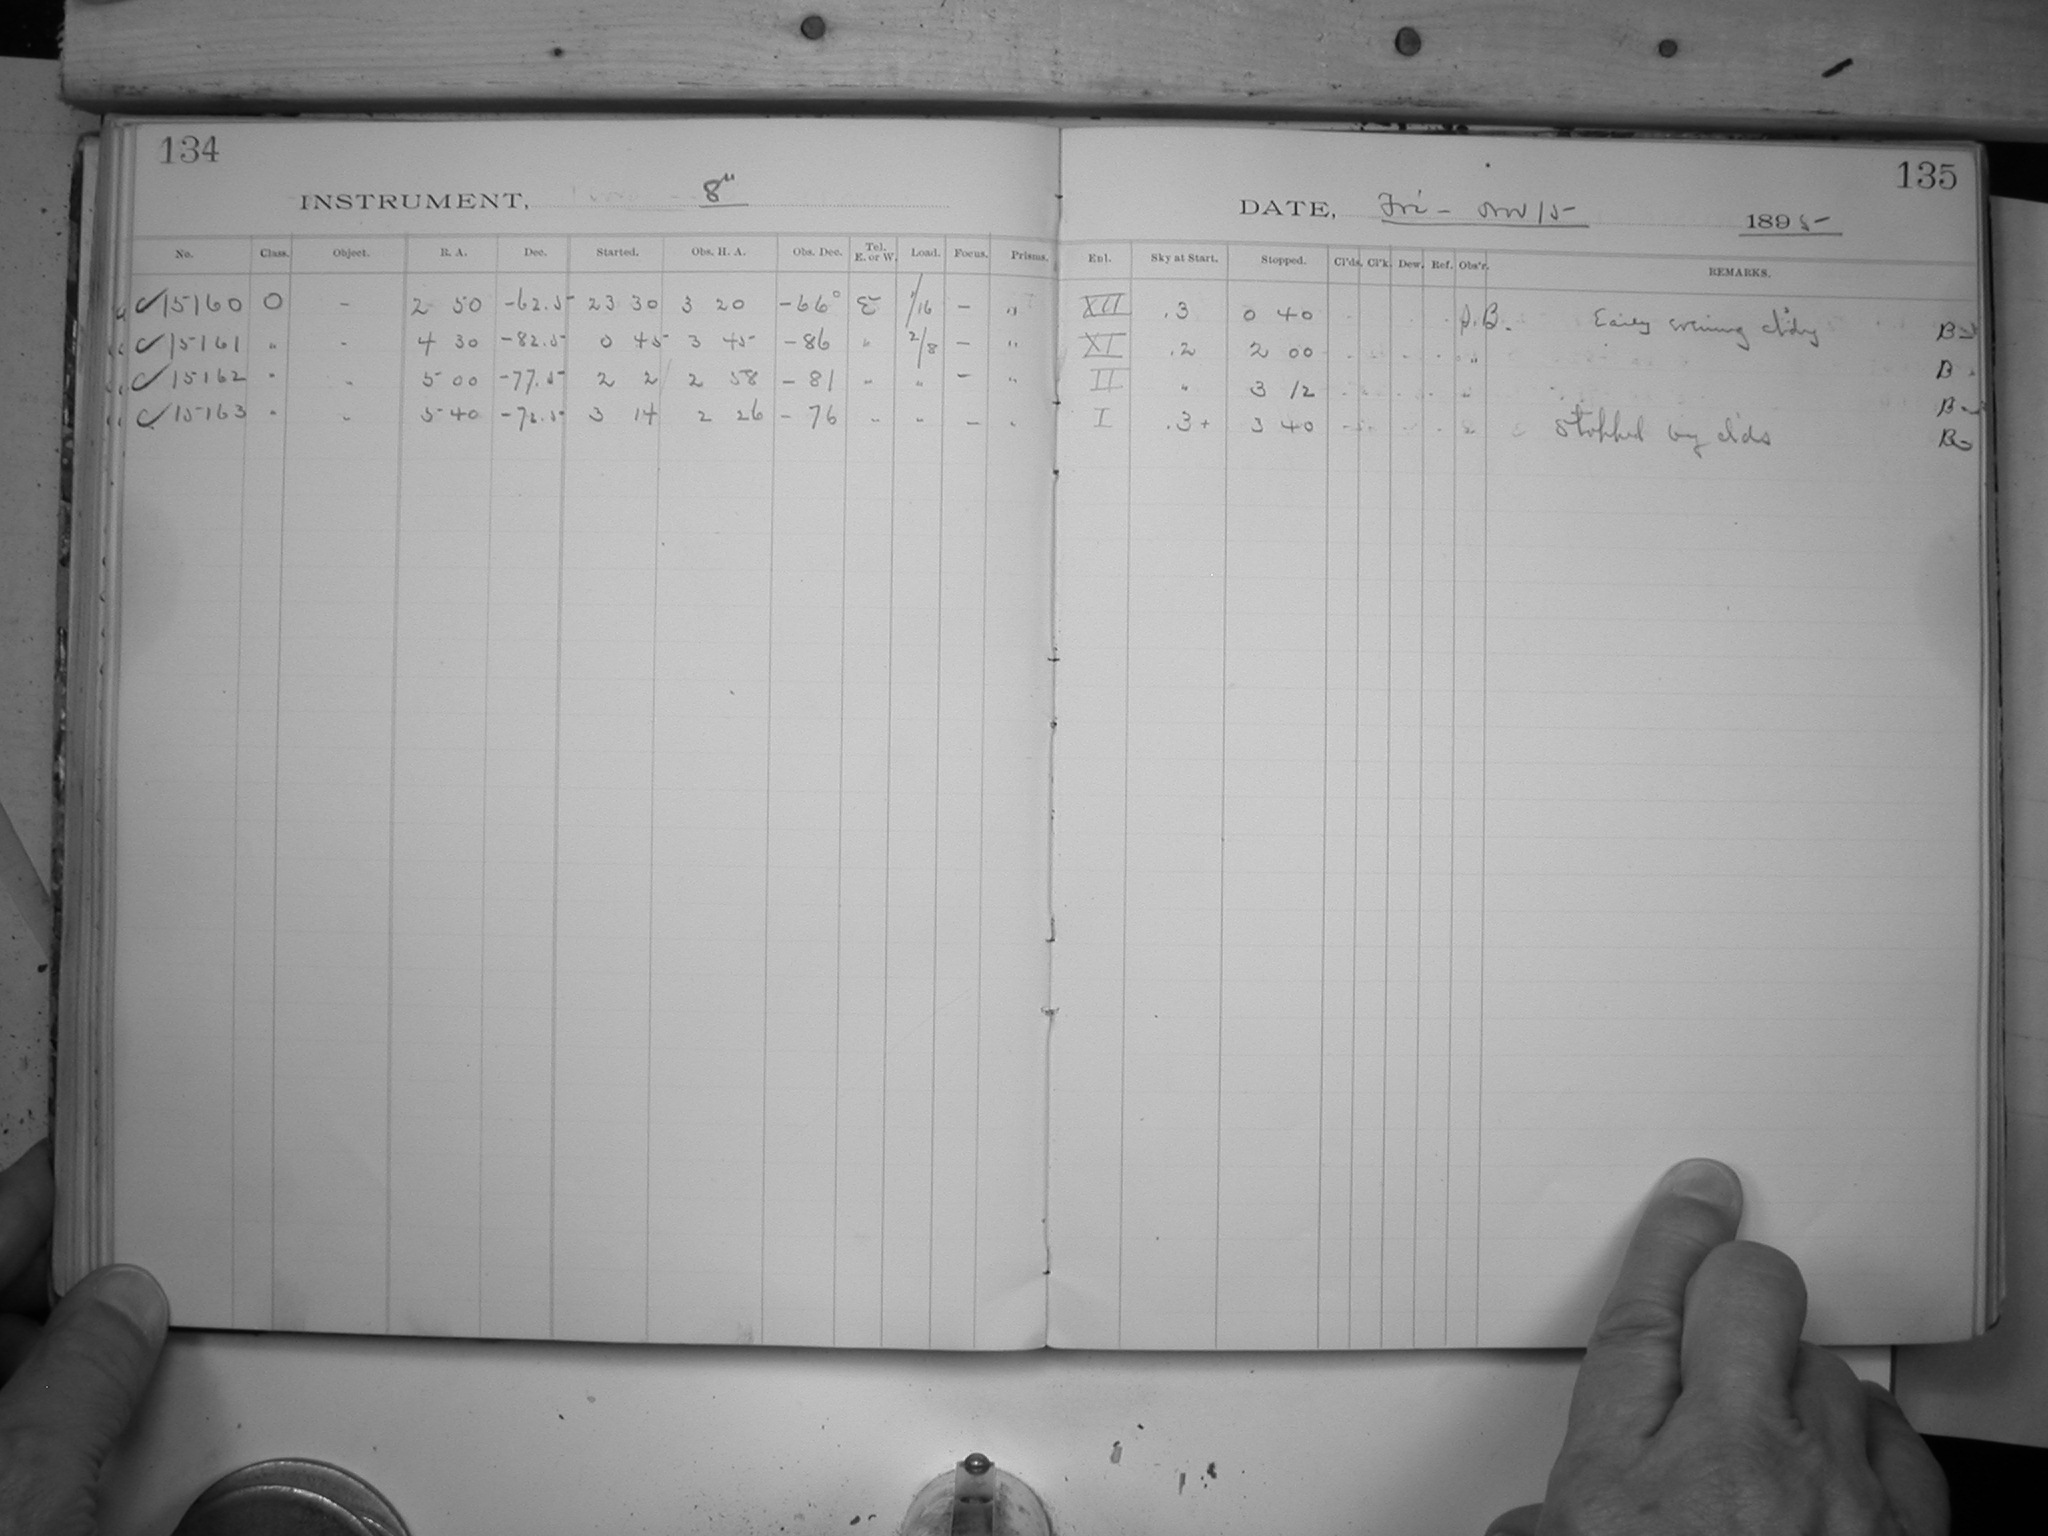 134
INSTRUMENT, 8"
No. Class. Object. R. A. Dec. Started. Obs. H. A. Obs. Dec. Tel. E. or W. Load. Focus. Prisms.
✓15160 O - 2 50 -62.5 23 30 3 20 -66° E 1/16 - "
✓15161 " - 4 30 -82.5 0 45 3 45 -86 " 2/8 - "
✓15162 " " 5 00 -77.5 2 2 2 58 -81 " " - "
✓15163 " " 5 40 -72.5 3 14 2 26 -76 " " - "
135
DATE, Fri - Nov 15 1895
Enl. Sky at Start. Stopped. Cl'ds. Cl'k. Dew. Ref. Obs'r. REMARKS.
XII .3 0 40 Early evening cl'dy B
XI .2 2 00 " B
II " 3 12 " B
I .3+ 3 40 Stopped by cl'ds B